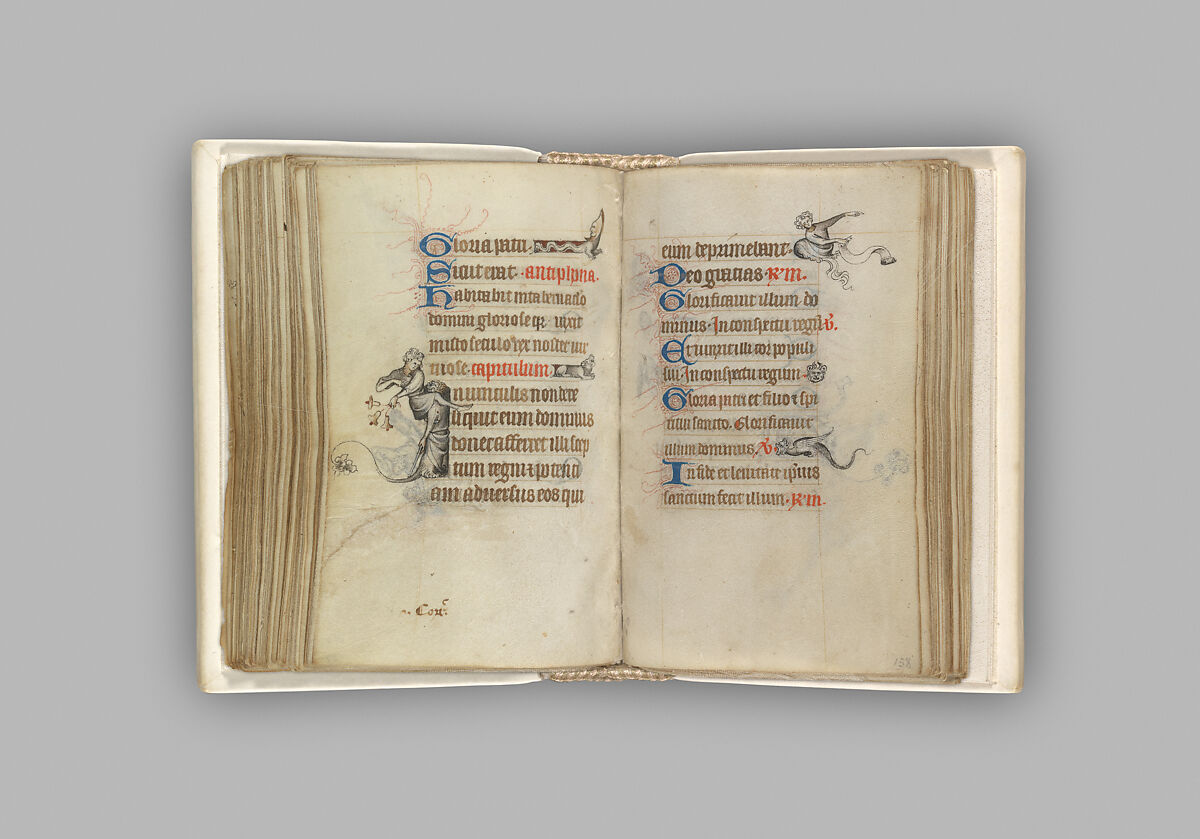 Gloria patri.
Sicut erat. antiphona.
habitabit in tabernaclo
domini gloriose qr uixit
in isto seculo rex noster uir
tuose. capitulum
unicuilis non dere
it eum dominus
donec afferret illi scep
trum regni et potenti
am aduersus eos qui
Cor
eum deprimebant.
Deo gratias. Rm.
Glorificauit illum do
minus. In conspectu regum. v.
Et uirit illi cor populi
sui. In conspectu regum.
Gloria patri et filio et spi
ritui sancto. Glorificauit
illum dominus. v
In fide et lenitate ipsius
sanctum fecit illum. Rm.
158